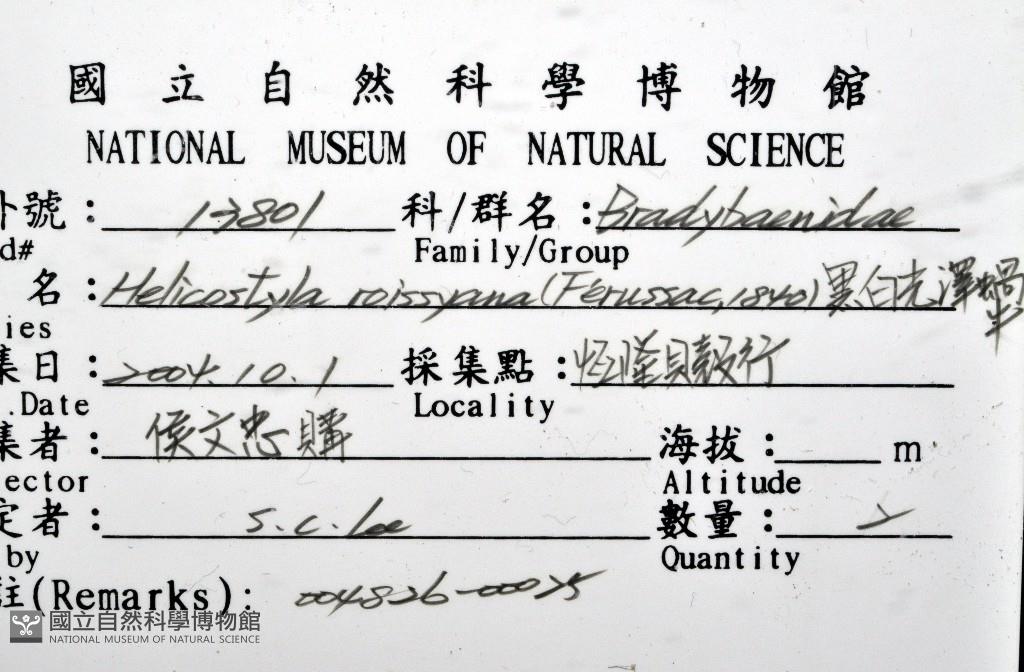 國立自然科學博物館
NATIONAL MUSEUM OF NATURAL SCIENCE
卡號: 13801 科/群名: Bradybaenidae
d# Family/Group
名: Helicostyla roissyana (Férussac, 1840) 異白光澤蝸牛
ies
集日: 2004.10.1 採集點: 恆隆貝殼行
.Date Locality
集者: 侯文忠購 海拔: m
ector Altitude
定者: S.C. Lee 數量: 2
by Quantity
註(Remarks): 004826-00025
國立自然科學博物館
NATIONAL MUSEUM OF NATURAL SCIENCE